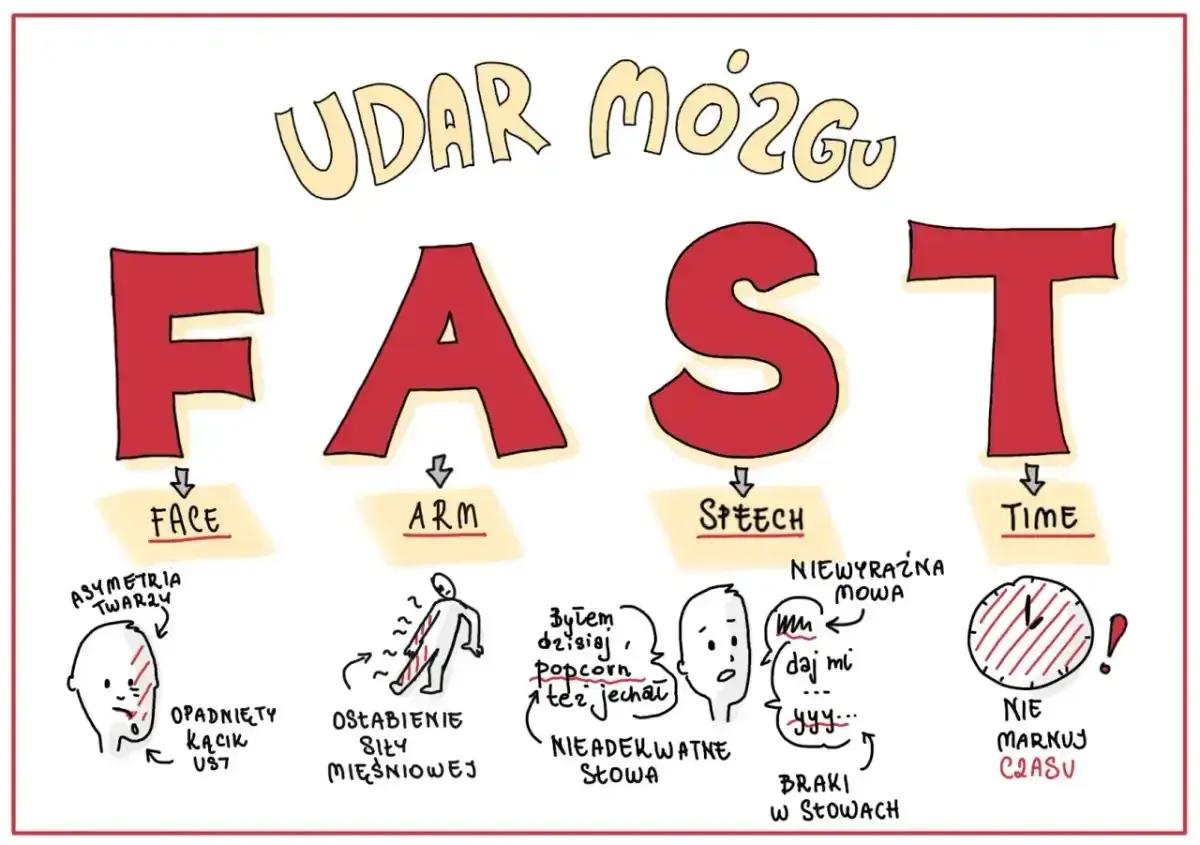 UDAR MÓZGU
FAST
FACE
ARM
SPEECH
TIME
ASYMETRIA
TWARZY
OPADNIĘTY
KĄCIK
UST
OSŁABIENIE
SIŁY
MIĘŚNIOWEJ
Byłem
dzisiaj,
popcorn
też jechał
NIEADEKWATNE
SŁOWA
NIEWYRAŹNA
MOWA
daj mi
...
yyy...
BRAKI
W SŁOWACH
NIE
MARNUJ
CZASU
!